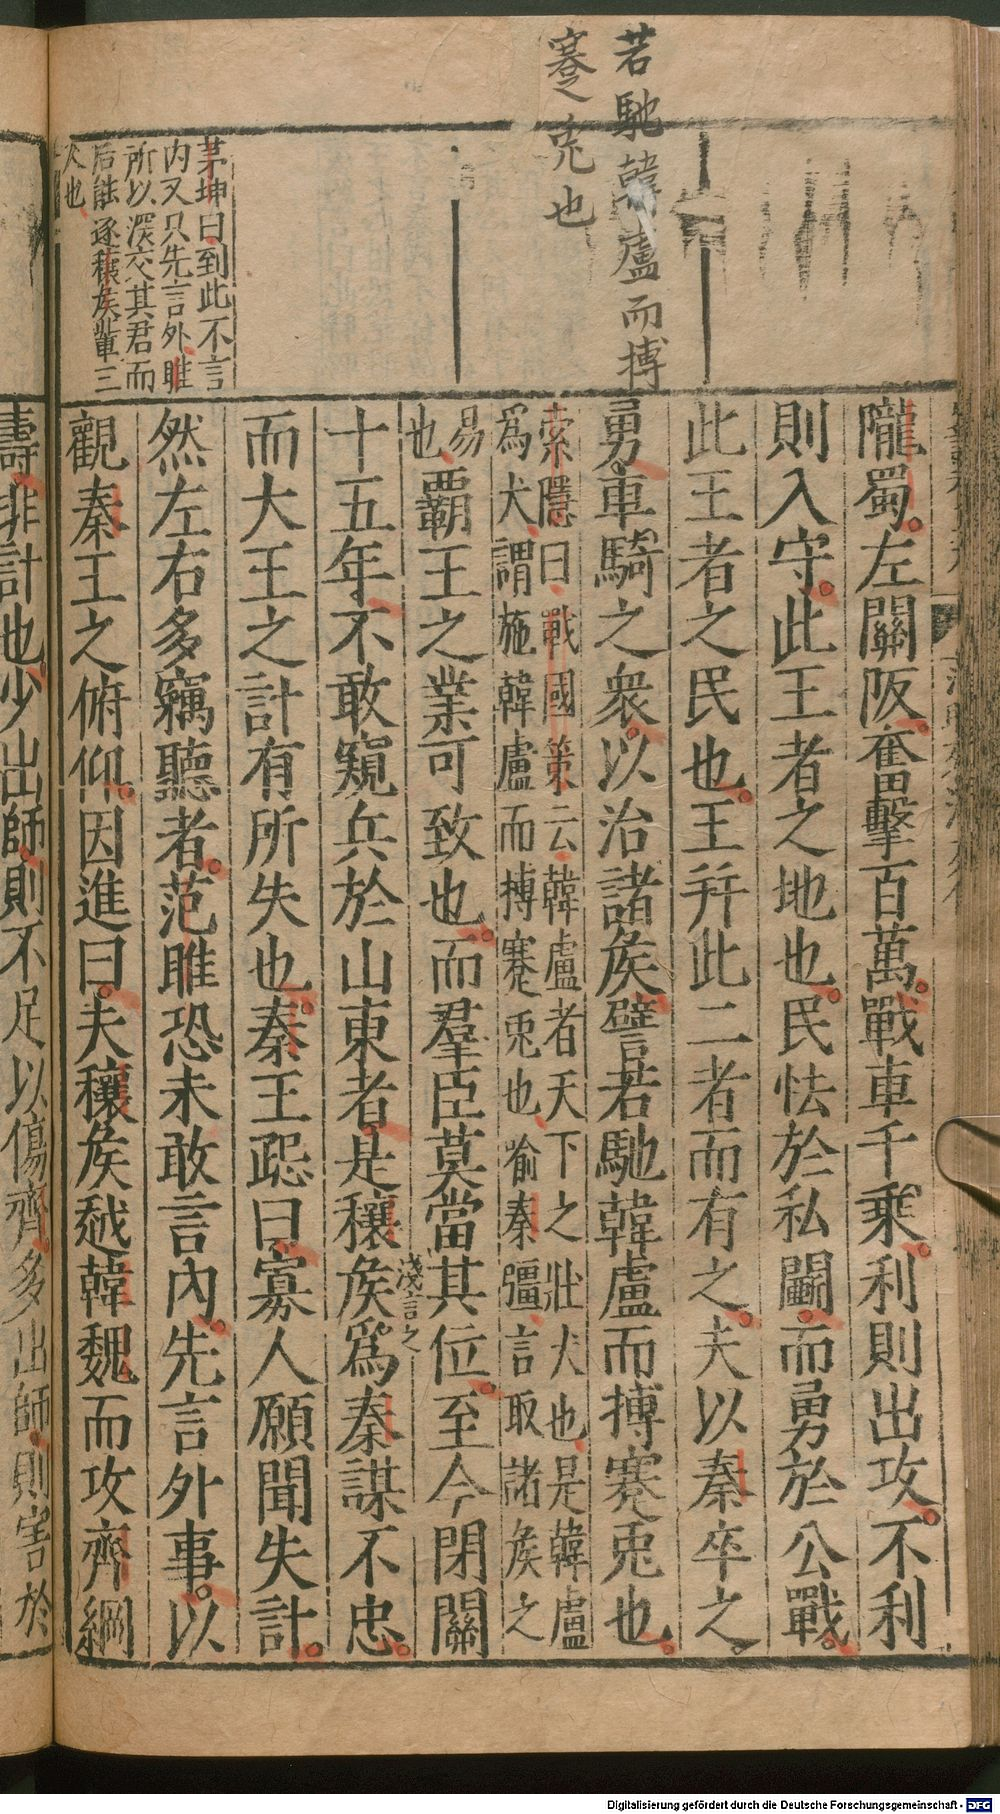 若馳韓盧而搏
蹇兎也
茅坤曰到此不言
内又只先言外睢
所以深交其君而
后能逐穰矦軰三
人也
隴蜀左關阪奮擊百萬戰車千乗利則出攻不利
則入守此王者之地也民怯於私鬭而勇於公戰
此王者之民也王幷此二者而有之夫以秦卒之
勇車騎之衆以治諸矦譬若馳韓盧而搏蹇兎也
索隱曰戰國策云韓盧者天下之壯犬也是韓盧
爲犬謂施韓盧而搏蹇兎也喻秦彊言取諸矦之
易
也
覇王之業可致也而羣臣莫當其位至今閉關
十五年不敢窺兵於山東者是穰矦爲秦謀不忠
淺言之
而大王之計有所失也秦王跽曰寡人願聞失計
然左右多竊聽者范睢恐未敢言内先言外事以
觀秦王之俯仰因進曰夫穰矦越韓魏而攻齊綱
壽非計也少出師則不足以傷齊多出師則害於
Digitalisierung gefördert durch die Deutsche Forschungsgemeinschaft - DFG